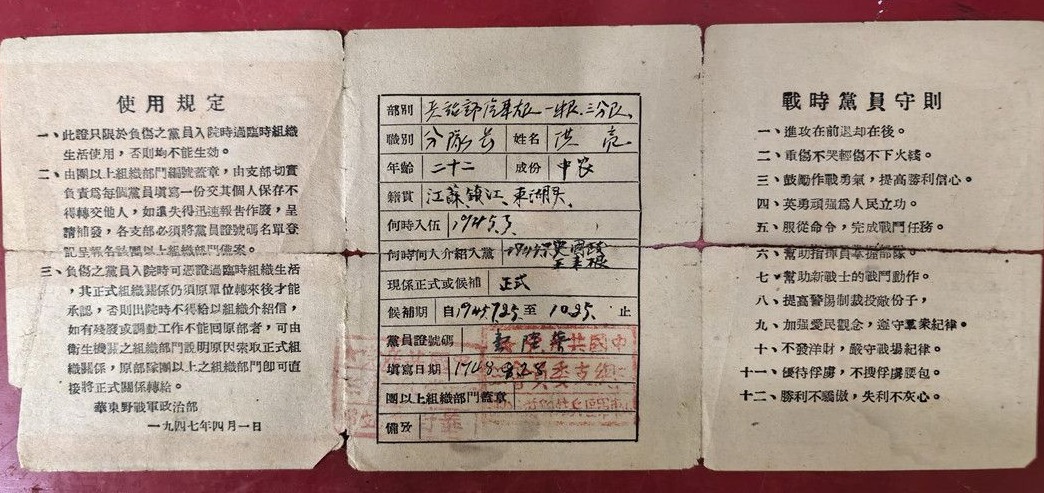 使用規定
一、此證只限於負傷之黨員入院時過臨時組織
生活使用，否則均不能生効。
二、由團以上組織部門編號蓋章，由支部切實
負責爲每個黨員填寫一份交其個人保存不
得轉交他人，如遺失得迅速報告作廢，呈
請補發，各支部必須將黨員證號碼名單登
記呈報各該團以上組織部門備案。
三、負傷之黨員入院時可憑證過臨時組織生活
，其正式組織關係仍須原單位轉來後才能
承認，否則出院時不得給以組織介紹信，
如有殘發或調動工作不能回原部者，可由
衛生機關之組織部門說明原因索取正式組
織關係，原部隊團以上之組織部門卽可直
接將正式關係轉給。
華東野戰軍政治部
一九四七年四月一日
部別
職別 分隊長 姓名 洪亮
年齡 二十二 成份 中农
籍貫 江蘇鎮江
何時入伍 1945.3
何時何人介紹入黨
現係正式或候補 正式
候補期 自1945.7.25.至10.25.止
黨員證號碼
填寫日期 1948.
團以上組織部門蓋章
備攷
中國共
戰時黨員守則
一、進攻在前退却在後。
二、重傷不哭輕傷不下火綫。
三、鼓勵作戰勇氣，提高勝利信心。
四、英勇頑強爲人民立功。
五、服從命令，完成戰鬥任務。
六、幫助指揮員掌握部隊。
七、幫助新戰士的戰鬥動作。
八、提高警惕制裁投敵份子，
九、加強愛民觀念，遵守羣衆紀律。
十、不發洋財，嚴守戰場紀律。
十一、優待俘虜，不搜俘虜腰包。
十二、勝利不驕傲，失利不灰心。